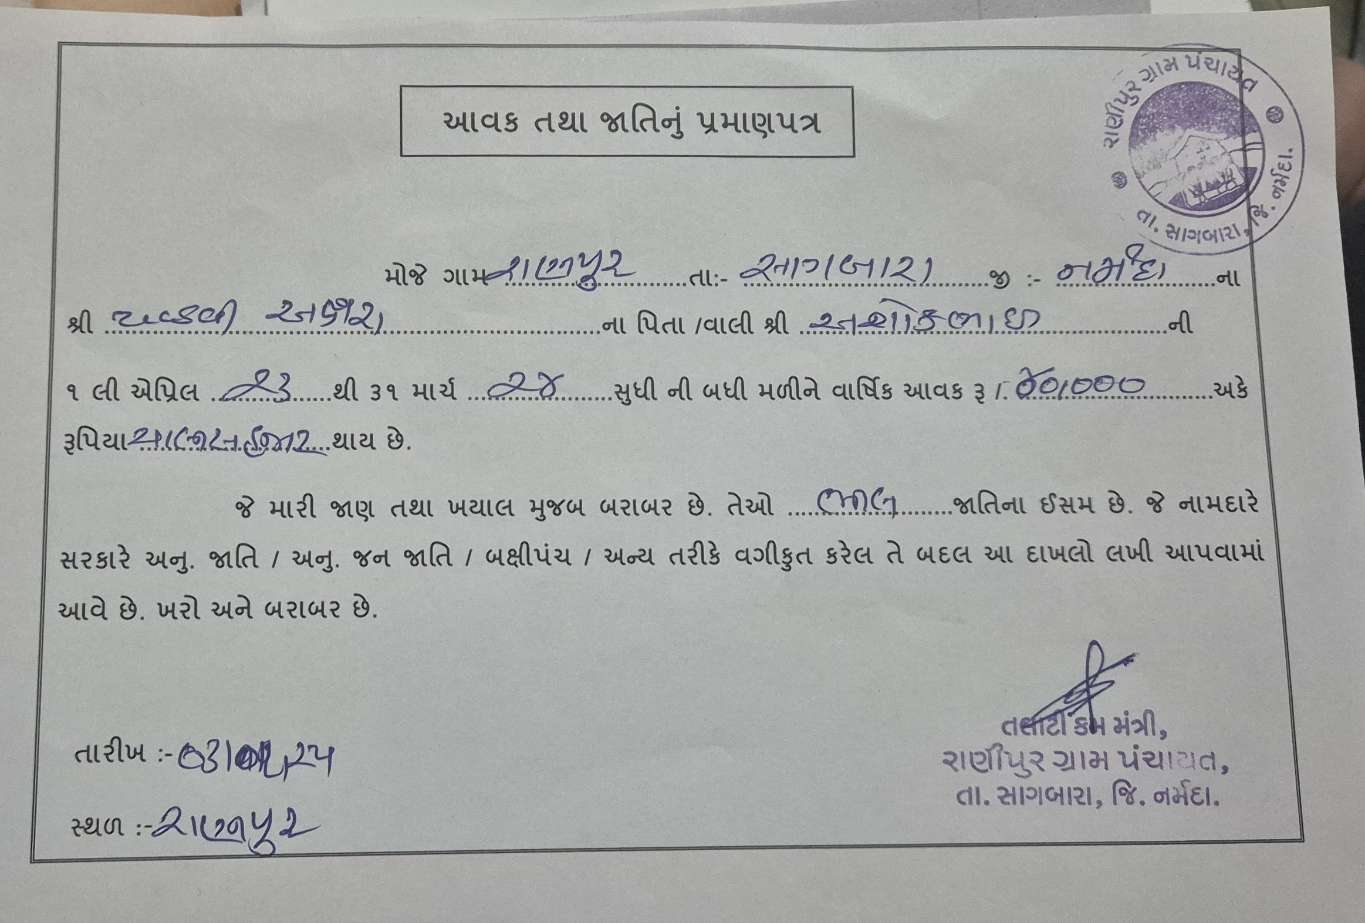 આવક તથા જાતિનું પ્રમાણપત્ર
રાણીપુર ગ્રામ પંચાયત
તા. સાગબારા, જિ. નર્મદા.
મોજે ગામ રાણીપુર તાઃ- સાગબારા જી :- નર્મદા ના
શ્રી ના પિતા /વાલી શ્રી અશોકભાઈ ની
૧ લી એપ્રિલ ૨૩ થી ૩૧ માર્ચ ૨૪ સુધી ની બધી મળીને વાર્ષિક આવક રૂ /. ૪૦,૦૦૦ અકે
રૂપિયા થાય છે.
જે મારી જાણ તથા ખયાલ મુજબ બરાબર છે. તેઓ ભીલ જાતિના ઈસમ છે. જે નામદારે
સરકારે અનુ. જાતિ / અનુ. જન જાતિ / બક્ષીપંચ / અન્ય તરીકે વગીકુત કરેલ તે બદલ આ દાખલો લખી આપવામાં
આવે છે. ખરો અને બરાબર છે.
તલાટી કમ મંત્રી,
રાણીપુર ગ્રામ પંચાયત,
તા. સાગબારા, જિ. નર્મદા.
તારીખ :-
સ્થળ :- રાણીપુર